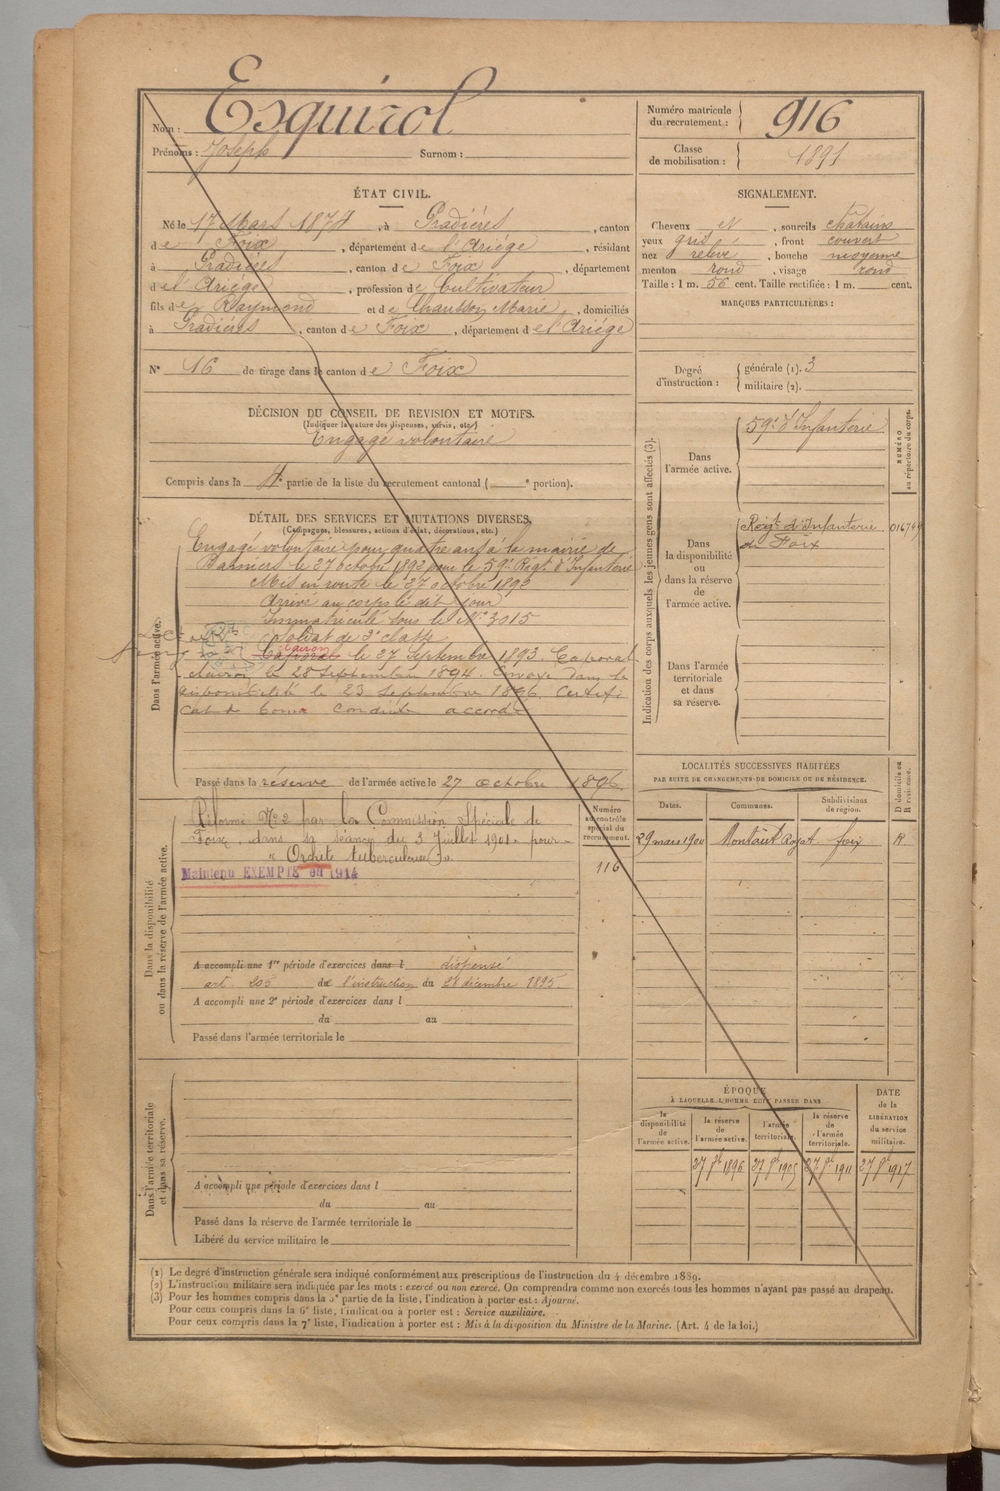 Nom : Esquirol
Prénoms : Joseph Surnom :
Numéro matricule du recrutement : 916
Classe de mobilisation : 1891
ÉTAT CIVIL.
Né le 17 Mars 1874, à Pradières, canton
de Foix, département de l'Ariége, résidant
à Pradières, canton de Foix, département
de l'Ariége, profession de Cultivateur
fils de Raymond et de Chausson Marie, domiciliés
à Pradières, canton de Foix, département de l'Ariége
N° 16 de tirage dans le canton de Foix
SIGNALEMENT.
Cheveux et, sourcils châtains
yeux gris, front couvert
nez relevé, bouche moyenne
menton rond, visage rond
Taille : 1 m. 56 cent. Taille rectifiée : 1 m. cent.
MARQUES PARTICULIÈRES :
Degré d'instruction :
générale (1). 3
militaire (2).
DÉCISION DU CONSEIL DE REVISION ET MOTIFS.
(Indiquer la nature des dispenses, sursis, etc.)
Engagé volontaire
Compris dans la 4e partie de la liste du recrutement cantonal ( e portion).
DÉTAIL DES SERVICES ET MUTATIONS DIVERSES.
(Campagnes, blessures, actions d'éclat, décorations, etc.)
Dans l'armée active.
Engagé volontaire pour quatre ans à la mairie de
Pamiers le 27 octobre 1892 pour le 59e Régt d'Infanterie
Mis en route le 27 octobre 1892
Arrivé au corps le dit jour
Immatriculé sous le N° 3015
Soldat de 2e classe
Caporal clairon le 27 Septembre 1893. Caporal
clairon le 28 septembre 1894. Envoyé dans la
disponibilité le 23 septembre 1896. Certifi-
cat de bonne conduite accordé
Passé dans la réserve de l'armée active le 27 octobre 1896.
Indication des corps auxquels les jeunes gens sont affectés (3).
Dans l'armée active.
59e d'Infanterie
NUMÉRO au répertoire du corps.
Dans la disponibilité ou dans la réserve de l'armée active.
Régt d'Infanterie
de Foix
Dans l'armée territoriale et dans sa réserve.
LOCALITÉS SUCCESSIVES HABITÉES
PAR SUITE DE CHANGEMENTS DE DOMICILE OU DE RÉSIDENCE.
Dates. Communes. Subdivisions de région. D domicile ou R résidence.
29 mars 1900 Montaut Royat Foix R
Dans la disponibilité ou dans la réserve de l'armée active.
Numéro au contrôle spécial du recrutement.
116
Réformé N° 2 par la Commission Spéciale de
Foix, dans sa séance du 3 Juillet 1901. pour
"Orchite tuberculeuse".
Maintenu EXEMPTE en 1914
A accompli une 1re période d'exercices dans l dispensé
art. 205 de l'instruction du 28 décembre 1895.
A accompli une 2e période d'exercices dans l
du au
Passé dans l'armée territoriale le
Dans l'armée territoriale et dans sa réserve.
A accompli une période d'exercices dans l
du au
Passé dans la réserve de l'armée territoriale le
Libéré du service militaire le
ÉPOQUE
À LAQUELLE L'HOMME DOIT PASSER DANS
la disponibilité de l'armée active.
la réserve de l'armée active.
l'armée territoriale.
la réserve de l'armée territoriale.
DATE de la LIBÉRATION du service militaire.
27 8bre 1896 27 8bre 1905 27 8bre 1911 27 8bre 1917
(1) Le degré d'instruction générale sera indiqué conformément aux prescriptions de l'instruction du 4 décembre 1889.
(2) L'instruction militaire sera indiquée par les mots : exercé ou non exercé. On comprendra comme non exercés tous les hommes n'ayant pas passé au drapeau.
(3) Pour les hommes compris dans la 5e partie de la liste, l'indication à porter est : Ajourné.
Pour ceux compris dans la 6e liste, l'indication à porter est : Service auxiliaire.
Pour ceux compris dans la 7e liste, l'indication à porter est : Mis à la disposition du Ministre de la Marine. (Art. 4 de la loi.)